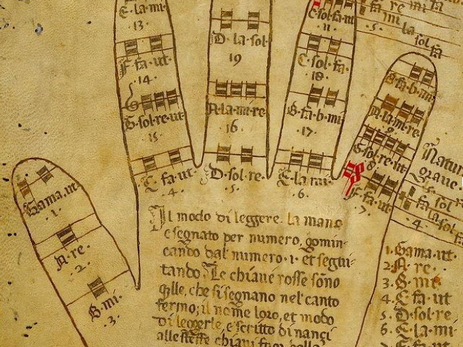 E·la·mi·
·13·
F·fa·ut
·14·
G·sol·re·ut
·15·
C·fa·ut
·4·
D·la·sol
19
A·la·mi·re
·16·
D·sol·re
·5·
C·sol·fa·
·18·
B·fa·b·mi
·17·
E·la·mi·
·6·
B·fa·b·mi
A·la·mi·re
G·sol·re·ut
F·fa·ut
·7·
Gama·ut
·1·
A·re·
·2·
B·mi
·3·
Il modo di leggere la mano
e segnato per numero, gomin
cando dal numero ·1· et segui
tando· Le chiaue rosse sono
qlle, che si segnano nel canto
fermo; il nome loro, et modo
di leggerle, e scritto di nanzi
alle stesse chiaui fuor della
Natura
graue
1·Gama·ut·
2·A·re·
3·B·mi
4·C·fa·ut
5·D·sol·re
6·E·la·mi
7·F·fa·ut